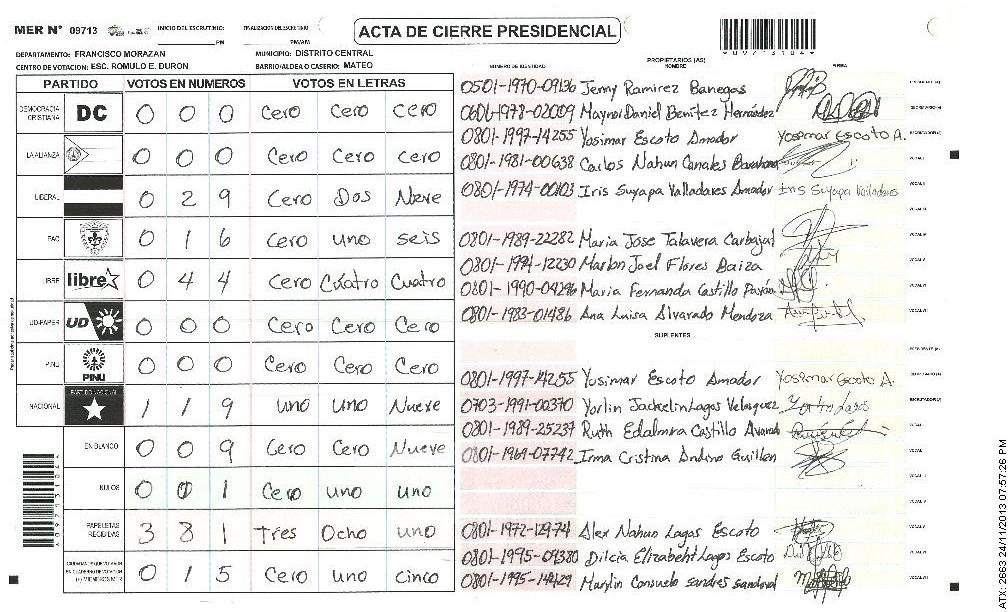 MER N° 09713 INICIO DEL ESCRUTINIO: PM FINALIZACION DEL ESCRUTINIO PM/AM
ACTA DE CIERRE PRESIDENCIAL
DEPARTAMENTO: FRANCISCO MORAZAN MUNICIPIO: DISTRITO CENTRAL
CENTRO DE VOTACION: ESC. ROMULO E. DURON BARRIO/ALDEA O CASERIO: MATEO
PARTIDO VOTOS EN NUMEROS VOTOS EN LETRAS
DEMOCRACIA CRISTIANA DC 0 0 0 Cero Cero Cero
LA ALIANZA 0 0 0 Cero Cero Cero
LIBERAL 0 2 9 Cero Dos Nueve
PAC 0 1 6 Cero uno seis
LIBRE libre 0 4 4 Cero Cuatro Cuatro
UD-FAPER UD 0 0 0 Cero Cero Cero
PINU PINU 0 0 0 Cero Cero Cero
NACIONAL PARTIDO NACIONAL 1 1 9 uno uno Nueve
EN BLANCO 0 0 9 Cero Cero Nueve
NULOS 0 1 1 Cero uno uno
PAPELETAS RECIBIDAS 3 8 1 Tres Ocho uno
0 1 5 Cero uno cinco
NUMERO DE IDENTIDAD PROPIETARIOS (AS) NOMBRE FIRMA
0501-1970-09136 Jenny Ramirez Banegas
0601-1978-02009 Maynor Daniel Benitez Hernández
0801-1997-14255 Yosimar Escoto Amador Yosimar Escoto A.
0801-1981-00638 Carlos Nahun Canales
0801-1974-00103 Iris Suyapa Valladares Amador Iris Suyapa Valladares
0801-1989-22282 Maria Jose Talavera Carbajal
0801-1994-12230 Marlon Joel Flores Baiza
0801-1990-04296 Maria Fernanda Castillo Pavón
0801-1983-01486 Ana Luisa Alvarado Mendoza
SUPLENTES
0801-1997-14255 Yosimar Escoto Amador Yosimar Escoto A.
0703-1991-00370 Yorlin Jackelin Lagos Velasquez Yorlin Lagos
0801-1989-25237 Ruth Edalmira Castillo Alvarado
0801-1969-07742 Irma Cristina Andino Guillen
0801-1972-12974 Alex Nahun Lagos Escoto
0801-1995-09380 Dilcia Elizabeht Lagos Escoto
0801-1995-14429 Marylin Consuelo sandres sandoval
ATX-2663 24/11/2013 07:57:26 PM